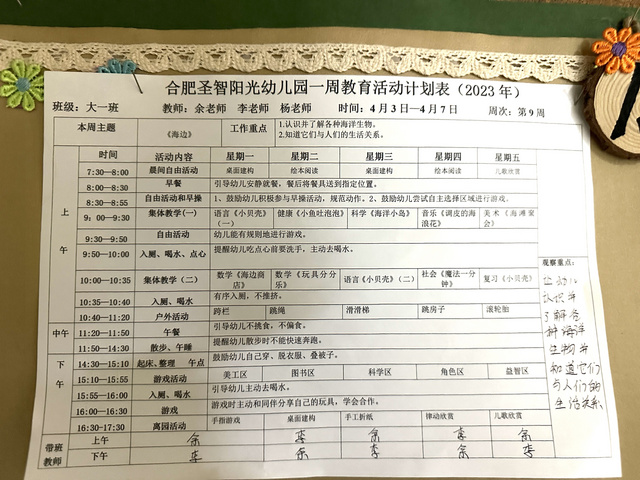 合肥圣智阳光幼儿园一周教育活动计划表（2023 年）
班级：大一班 教师：余老师 李老师 杨老师 时间：4 月 3 日—4 月 7 日 周次：第 9 周
本周主题 《海边》 工作重点 1.认识并了解各种海洋生物。
2.知道它们与人们的生活关系。
时间 活动内容 星期一 星期二 星期三 星期四 星期五
上午
7:30—8:00 晨间自由活动 桌面建构 绘本阅读 桌面建构 绘本阅读 儿歌欣赏
8:00—8:30 早餐 引导幼儿安静就餐，餐后将餐具送到指定位置。
自由活动和早操 1、鼓励幼儿积极参与早操活动，规范动作。2、鼓励幼儿尝试自主选择区域进行游戏。
9：00—9:30 集体教学（一） 语言《小贝壳》（一） 健康《小鱼吐泡泡》 科学《海洋小岛》 音乐《调皮的海浪花》 美术《海滩宴会》
9:30—9:50 自由活动 幼儿能有规则地进行游戏。
9:50—10:00 入厕、喝水、点心 提醒幼儿吃点心前要洗手，主动去喝水。
10:00—10:35 集体教学（二） 数学《海边商店》 数学《玩具分分乐》 语言《小贝壳》（二） 社会《魔法一分钟》 复习《小贝壳》
10:35—10:40 入厕、喝水 有序入厕，不推挤。
10:40—11:20 户外活动 跨栏 跳绳 滑滑梯 跳房子 滚轮胎
中午
11:20—11:50 午餐 引导幼儿不挑食，不偏食。
11:50—14:30 散步、午睡 提醒幼儿散步时不能快速奔跑。
下午
14:30—15:10 起床、整理 午点 鼓励幼儿自己穿、脱衣服、叠被子。
15:10—15:55 游戏活动 美工区 图书区 科学区 角色区 益智区
15:55—16:00 入厕、喝水 引导幼儿主动去喝水。
16:00—16:30 游戏 游戏时主动和同伴分享自己的玩具，学会合作。
16:30-17:30 离园活动 手指游戏 桌面建构 手工折纸 律动欣赏 儿歌欣赏
带班教师
上午 余 李 余 李 余
下午 李 余 李 余 李
观察重点：
认识并
了解各
种海洋
生物并
知道它们
与人们的
生活关系